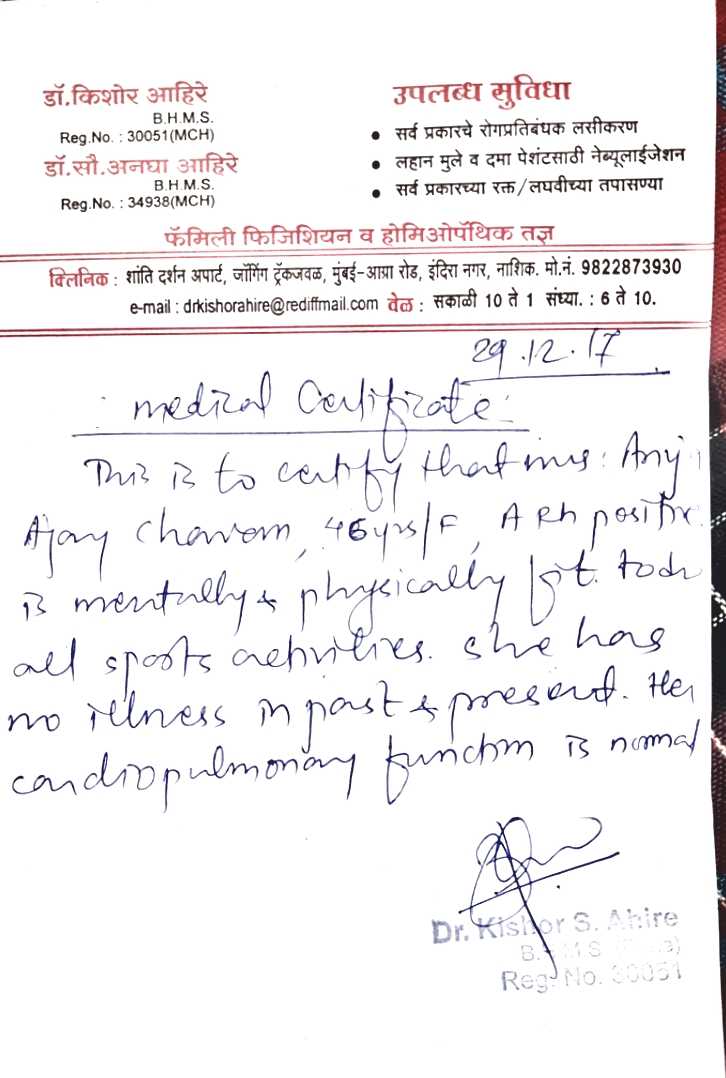 डॉ.किशोर आहिरे
B.H.M.S.
Reg.No. : 30051(MCH)
डॉ.सौ.अनघा आहिरे
B.H.M.S.
Reg.No. : 34938(MCH)
उपलब्ध सुविधा
• सर्व प्रकारचे रोगप्रतिबंधक लसीकरण
• लहान मुले व दमा पेशंटसाठी नेब्यूलाईजेशन
• सर्व प्रकारच्या रक्त/लघवीच्या तपासण्या
फॅमिली फिजिशियन व होमिओपॅथिक तज्ञ
क्लिनिक : शांति दर्शन अपार्ट, जॉगिंग ट्रॅकजवळ, मुंबई-आग्रा रोड, इंदिरा नगर, नाशिक. मो.नं. 9822873930
e-mail : drkishorahire@rediffmail.com वेळ : सकाळी 10 ते 1 संध्या. : 6 ते 10.
29.12.17
medical Certificate:
This is to certify that mrs:
Ajay chavan, 46yrs/F, A Rh positive
is mentally & physically fit. to do
all sports activities. she has
no illness in past & present. Her
cardiopulmonary function is normal
Dr. Kishor S. Ahire
Reg. No. 30051